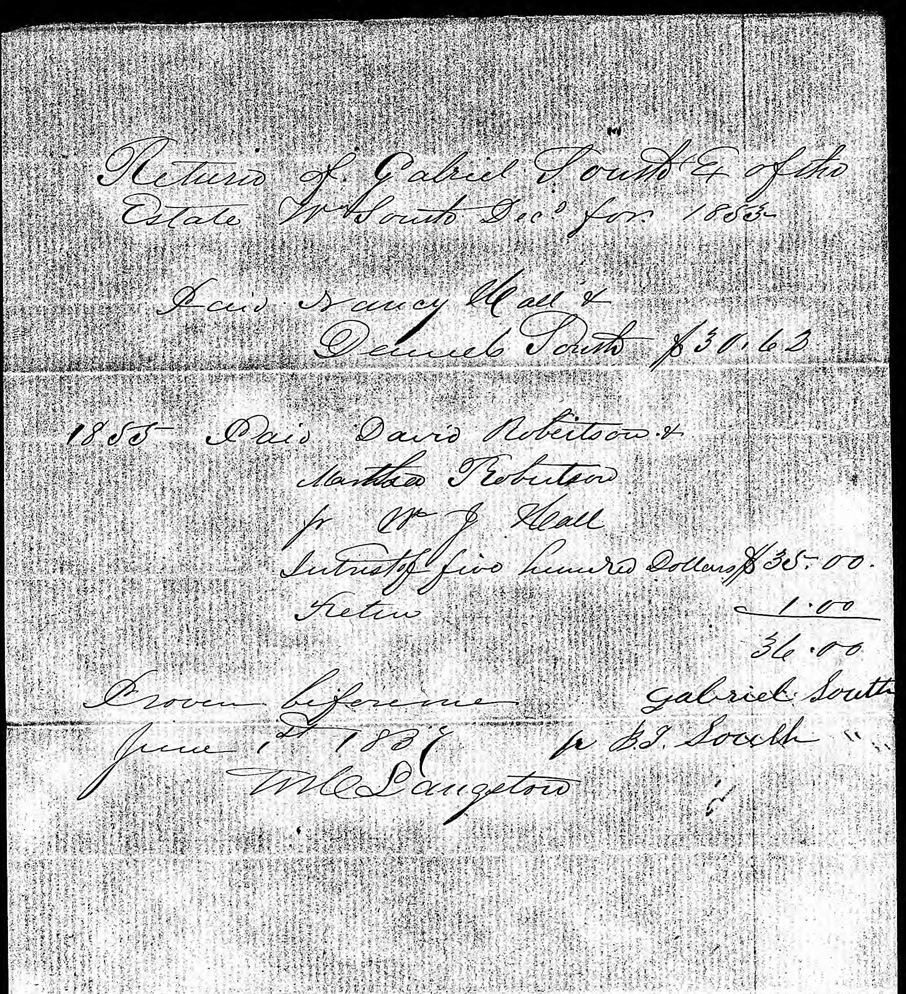 Return of Gabriel South Ex of the
Estate Wm South Decd for 1853
Paid Nancy Hall &
South $30.62
1855 Paid David Robertson &
Martha Robertson
pr Wm J Hall
Intrust of five hundred Dollars $35.00.
1.00
36.00
Proven before me Gabriel South
June 1st pr B.J. South